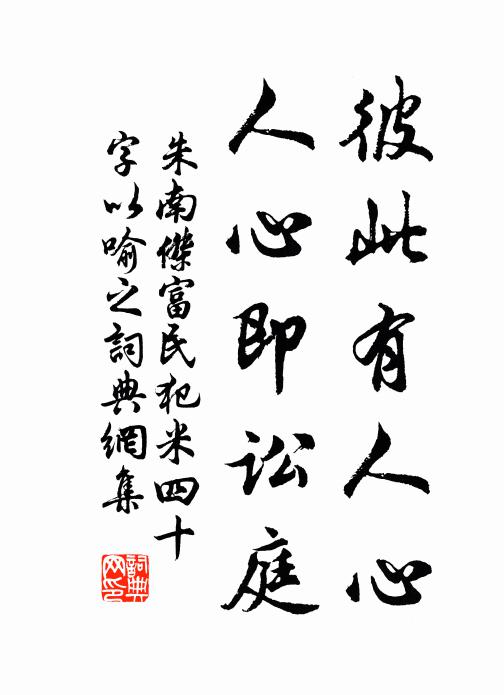 彼此有人心
人心即訟庭
朱南傑富民犯米四十
字以喻之詞典網集
詞典
网印